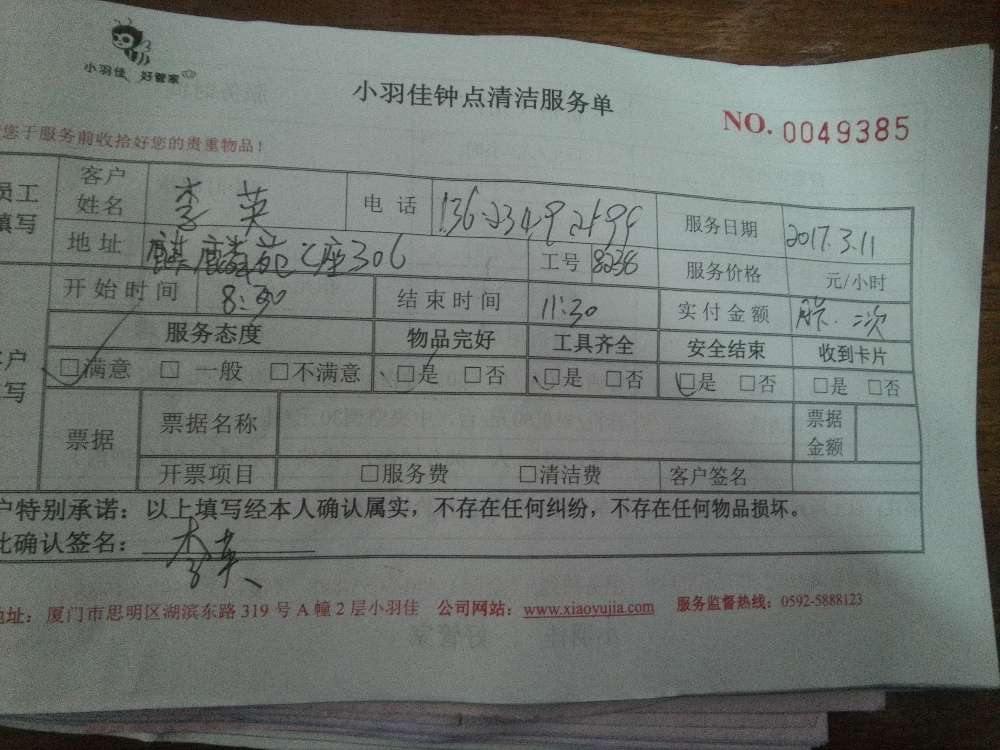 小羽佳 好管家
小羽佳钟点清洁服务单
NO. 0049385
您于服务前收拾好您的贵重物品！
员工 客户 李英 电话 服务日期 2017.3.11
填写 姓名
地址 麒麟苑C座306 工号 8238 服务价格 元/小时
开始时间 8:30 结束时间 11:30 实付金额 二次
服务态度 物品完好 工具齐全 安全结束 收到卡片
客户 □满意 □一般 □不满意 □是 □否 □是 □否 □是 □否 □是 □否
填写
票据 票据名称 票据
金额
开票项目 □服务费 □清洁费 客户签名
户特别承诺：以上填写经本人确认属实，不存在任何纠纷，不存在任何物品损坏。
此确认签名：李英
地址：厦门市思明区湖滨东路319号A幢2层小羽佳 公司网站：www.xiaoyujia.com 服务监督热线：0592-5888123